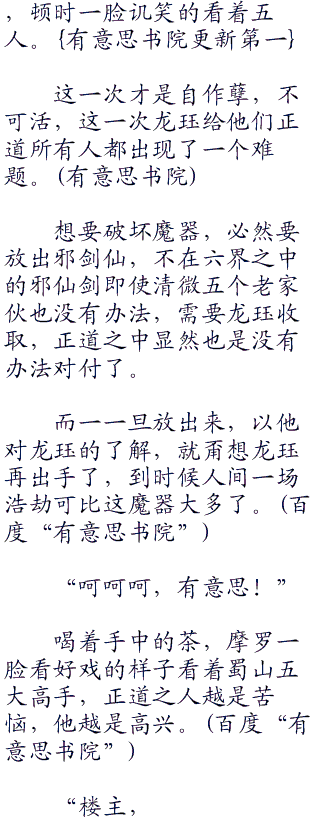 ，顿时一脸讥笑的看着五
人。{有意思书院更新第一}
这一次才是自作孽，不
可活，这一次龙珏给他们正
道所有人都出现了一个难
题。(有意思书院)
想要破坏魔器，必然要
放出邪剑仙，不在六界之中
的邪仙剑即使清微五个老家
伙也没有办法，需要龙珏收
取，正道之中显然也是没有
办法对付了。
而一一旦放出来，以他
对龙珏的了解，就甭想龙珏
再出手了，到时候人间一场
浩劫可比这魔器大多了。(百
度“有意思书院”)
“呵呵呵，有意思！”
喝着手中的茶，摩罗一
脸看好戏的样子看着蜀山五
大高手，正道之人越是苦
恼，他越是高兴。(百度“有
意思书院”)
“楼主，